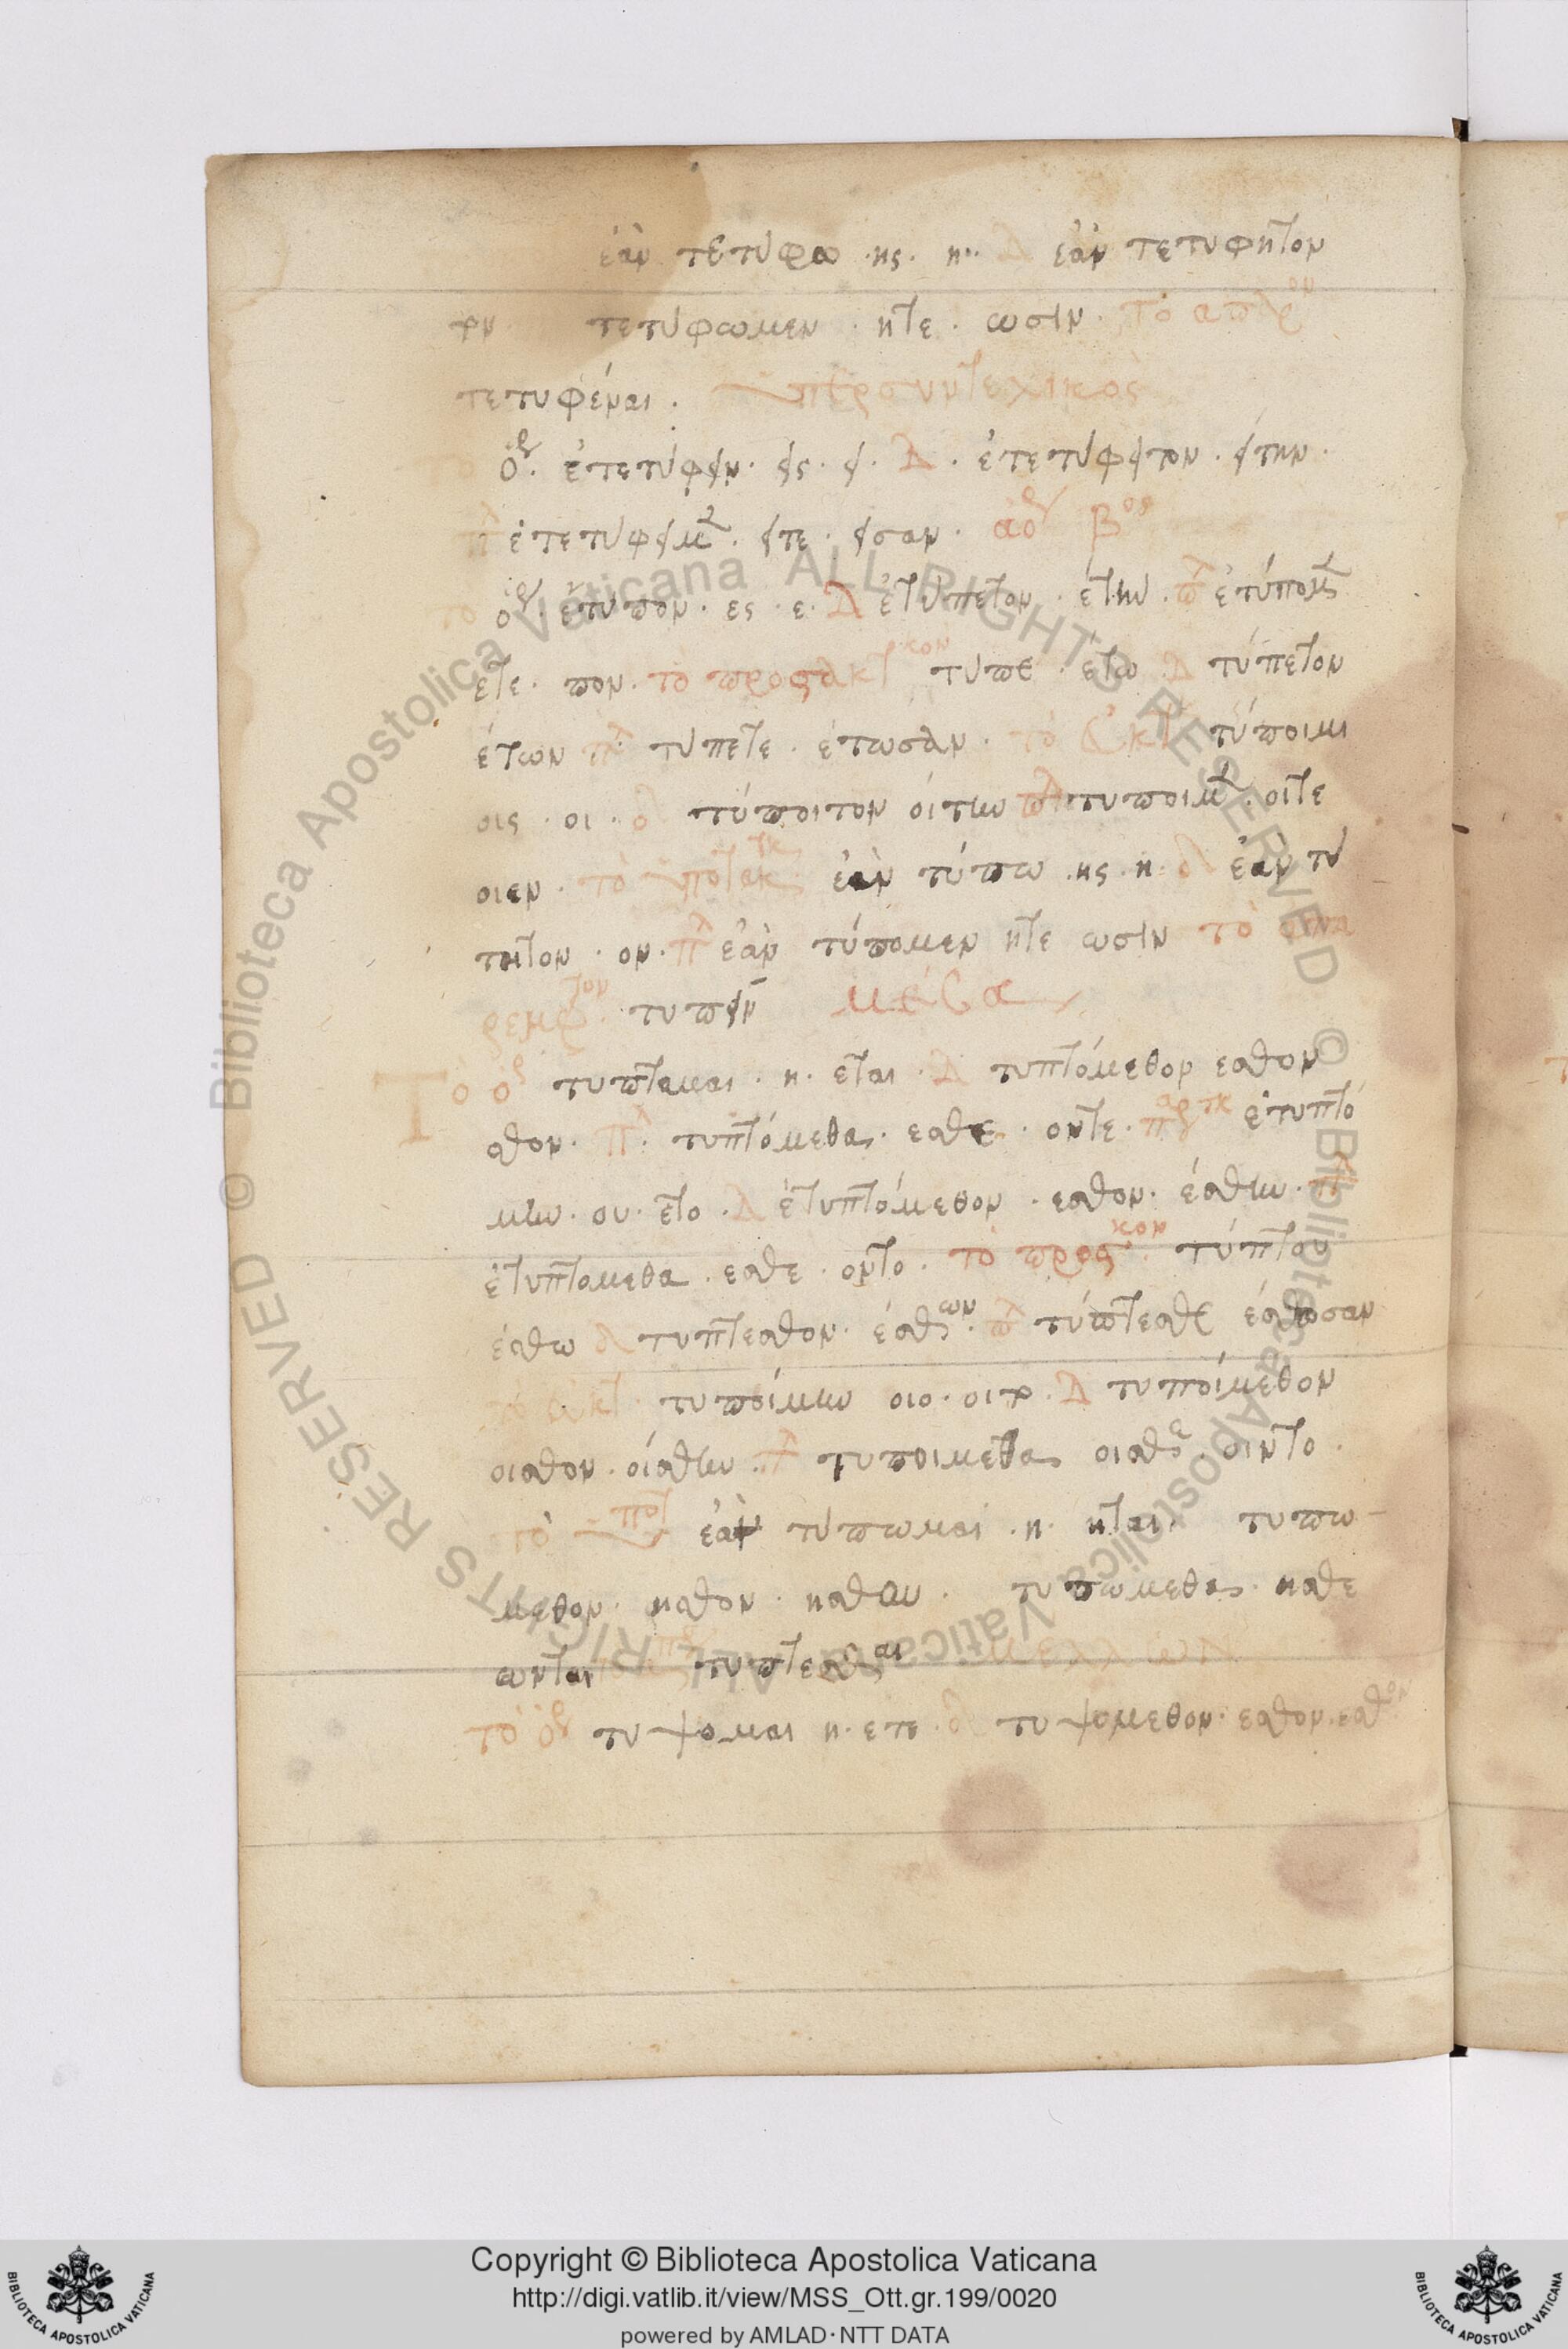 ἐὰν τετύφω · ης · η · Δ ἐὰν τετυφητον
τον τετύφωμεν · ητε · ωσιν · τὸ απρ
τετυφέναι · ὑπερσυντελικος
ὁρ · ἐτετύφειν · εις · ει · Δ · ἐτετύφειτον · είτην ·
πλ ἐτετύφειμ · ειτε · εισαν · αορ βος
το ὁρ · ἔτυπον · ες · ε · Δ ἐτύπετον · ετην · πλ ἐτύπομ
ετε · πον · τὸ προστακτικον τυπε · έτω Δ τύπετον
έτων πλ τύπετε · ἑτωσαν · τὸ εὐκτ τύποιμι
οις · οι · δ τύποιτον οίτην πλ τυποιμ · οιτε
οιεν · τὸ ὑποτακτικ ἐὰν τύπω · ης · η · δ ἐὰν τύ
πητον · ον · πλ ἐὰν τύπομεν ητε ωσιν τὸ απα
ρεμφτον · τυπεῖν μέσα
Τὸ ὁρ τυπταμαι · η · εται · Δ τυπτόμεθον εσθον
σθον · πλ · τυπτόμεθα · εσθε · ονται · παρτκ ἐτυπτό
μην · ου · ετο · Δ ἐτυπτόμεθον · εσθον · έσθην · πλ
ἐτυπτομεθα · εσθε · οντο · τὸ προσκον · τύπτου
έσθω δ τυπτεσθον · έσθων · πλ τύπτεσθε έσθοσαν
τὸ εὐκτ · τυποίμην οιο · οιτο · Δ τυποίμεθον
οισθον · οίσθην · πλ τυποιμεθα οισθε · οιντο ·
τὸ ὑποτ ἐὰν τύπωμαι · η · ηται · τυπω
μεθον · ησθον · ησθον · τυπώμεθα · ησθε
ωνται τυπτεσθαι μελλων
τὸ ὁρ τυψομαι η · ετε · δ τυψόμεθον · εσθον · εσθον
Copyright © Biblioteca Apostolica Vaticana
http://digi.vatlib.it/view/MSS_Ott.gr.199/0020
powered by AMLAD·NTT DATA